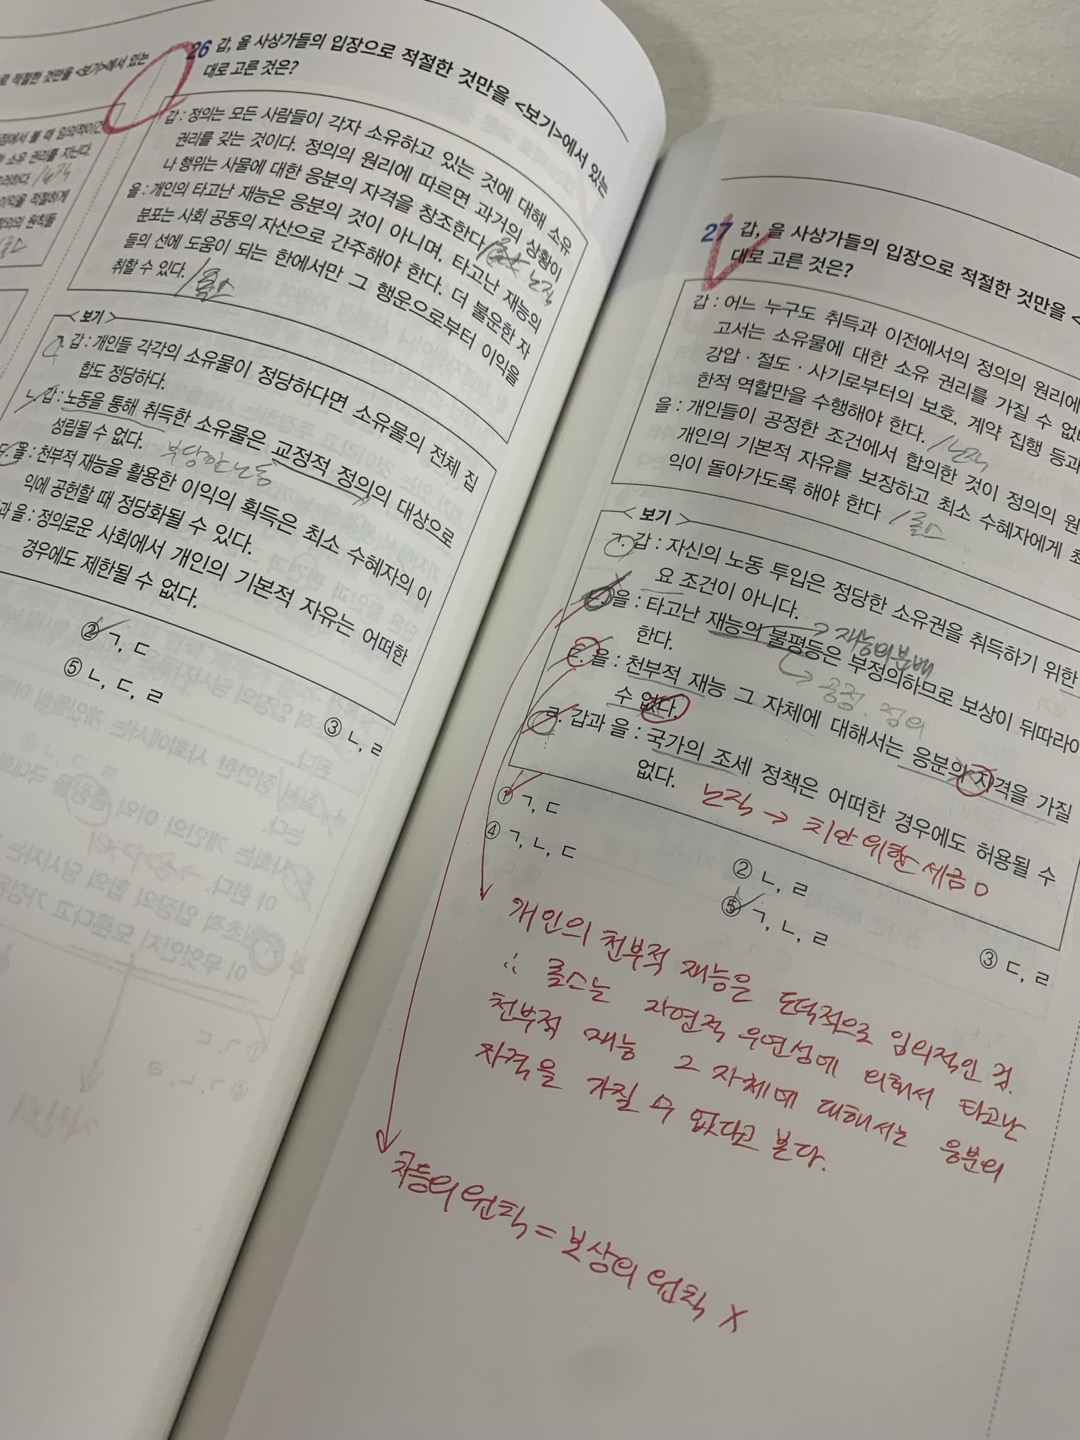 로 적절한 것만을 <보기>에서 있는
점에서 볼 때 임의적이건
소유 권리를 지닌다.
이익을 적절하게
정의의 원칙들
26 갑, 을 사상가들의 입장으로 적절한 것만을 <보기>에서 있는
대로 고른 것은?
갑 : 정의는 모든 사람들이 각자 소유하고 있는 것에 대해 소유
권리를 갖는 것이다. 정의의 원리에 따르면 과거의 상황이
나 행위는 사물에 대한 응분의 자격을 창조한다. 노직
을 : 개인의 타고난 재능은 응분의 것이 아니며, 타고난 재능의
분포는 사회 공동의 자산으로 간주해야 한다. 더 불운한 자
들의 선에 도움이 되는 한에서만 그 행운으로부터 이익을
취할 수 있다. /롤스
<보기>
ㄱ. 갑 : 개인들 각각의 소유물이 정당하다면 소유물의 전체 집
합도 정당하다.
ㄴ. 갑 : 노동을 통해 취득한 소유물은 교정적 정의의 대상으로
성립될 수 없다. 부당한 노동
ㄷ. 을 : 천부적 재능을 활용한 이익의 획득은 최소 수혜자의 이
익에 공헌할 때 정당화될 수 있다.
과 을 : 정의로운 사회에서 개인의 기본적 자유는 어떠한
경우에도 제한될 수 없다.
② ㄱ, ㄷ
③ ㄴ, ㄹ
⑤ ㄴ, ㄷ, ㄹ
27 갑, 을 사상가들의 입장으로 적절한 것만을 <
대로 고른 것은?
갑 : 어느 누구도 취득과 이전에서의 정의의 원리에
고서는 소유물에 대한 소유 권리를 가질 수 없
강압·절도·사기로부터의 보호, 계약 집행 등과
한적 역할만을 수행해야 한다. /노직
을 : 개인들이 공정한 조건에서 합의한 것이 정의의 원
개인의 기본적 자유를 보장하고 최소 수혜자에게 최
익이 돌아가도록 해야 한다 /롤스
<보기>
ㄱ. 갑 : 자신의 노동 투입은 정당한 소유권을 취득하기 위한
요 조건이 아니다. → 재능의 분배
ㄴ. 을 : 타고난 재능의 불평등은 부정의하므로 보상이 뒤따라야
한다. → 공정, 정의
ㄷ. 을 : 천부적 재능 그 자체에 대해서는 응분의 자격을 가질
수 없다.
ㄹ. 갑과 을 : 국가의 조세 정책은 어떠한 경우에도 허용될 수
없다. 노직 → 치안 위한 세금 O
① ㄱ, ㄷ
② ㄴ, ㄹ
③ ㄷ, ㄹ
④ ㄱ, ㄴ, ㄷ
⑤ ㄱ, ㄴ, ㄹ
개인의 천부적 재능은 도덕적으로 임의적인 것.
∴ 롤스는 자연적 우연성에 의해서 타고난
천부적 재능 그 자체에 대해서는 응분의
자격을 가질 수 없다고 본다.
차등의 원칙 = 보상의 원칙 X